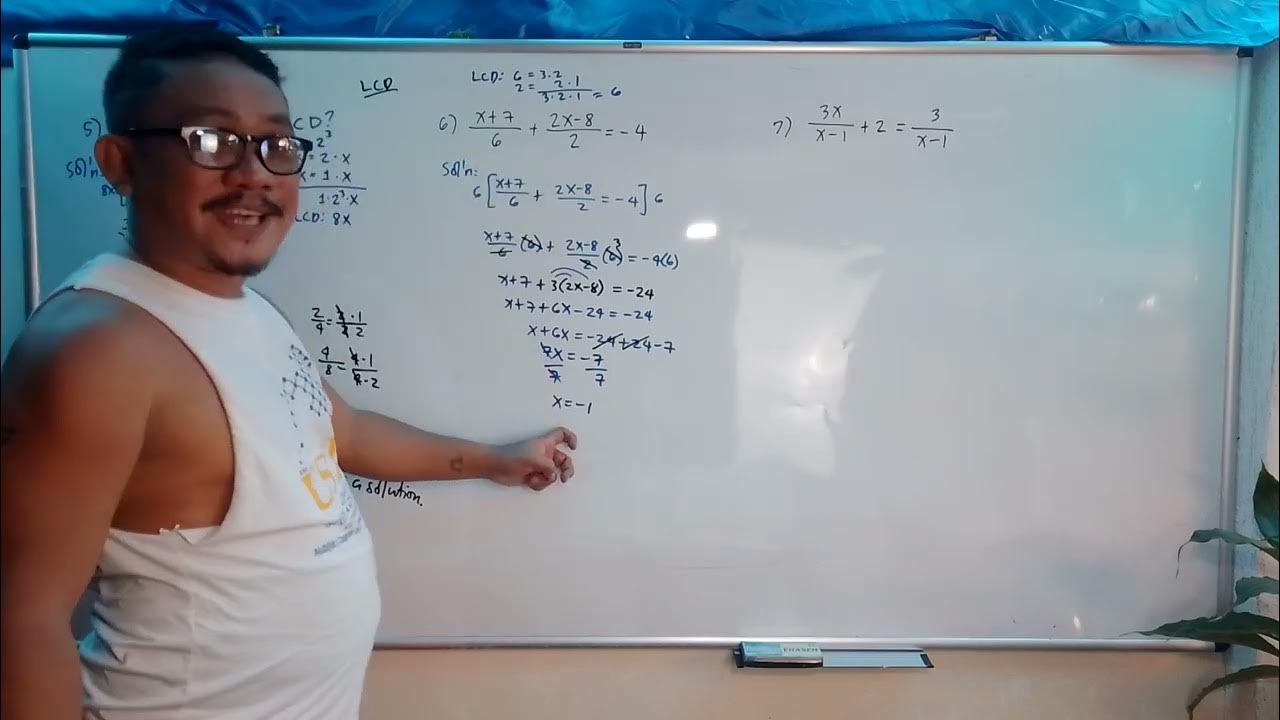 LCD
5)
LCD?
2³
= 2 · x
x = 1 · x
1 · 2³ · x
LCD: 8x
Sol'n:
8x
2/4 = 2 · 1 / 2 · 2
4/8 = 4 · 1 / 4 · 2
a solution.
LCD: 6 = 3 · 2
2 = 2 · 1
3 · 2 · 1 = 6
6) x+7/6 + 2x-8/2 = -4
Sol'n:
6 [x+7/6 + 2x-8/2 = -4] 6
x+7/6 (6) + 2x-8/2 (6)³ = -4(6)
x+7 + 3(2x-8) = -24
x+7+6x-24 = -24
x+6x = -24+24-7
7x/7 = -7/7
x = -1
7) 3x/x-1 + 2 = 3/x-1
ERASER